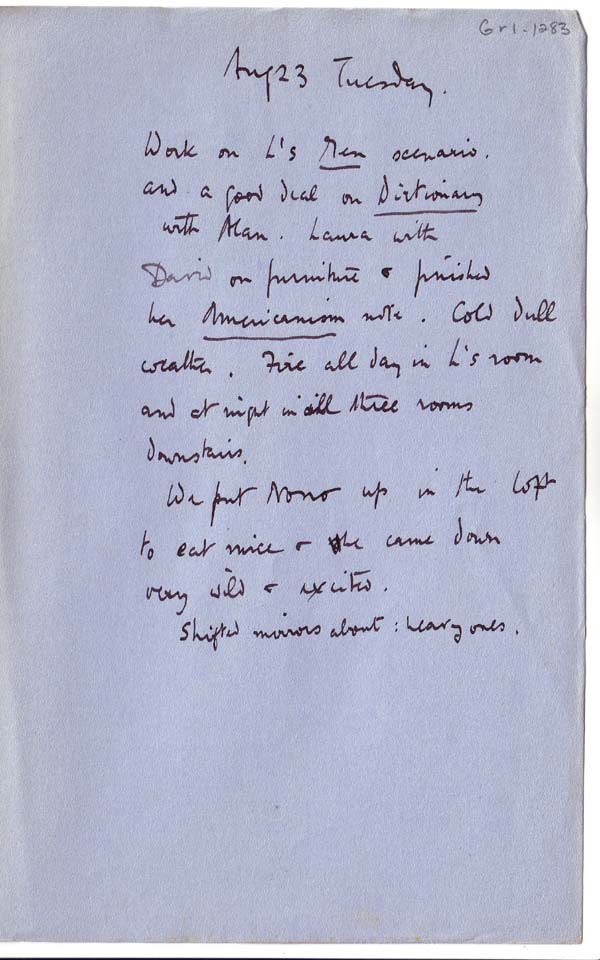 Gr1-1283
Aug 23 Tuesday.
Work on L's Men scenario.
and a good deal on Dictionary
with Alan. Laura with
David on furniture & finished
her Americanism note. Cold dull
weather. Fire all day in L's room
and at night in all three rooms
downstairs.
We put Nono up in the loft
to eat mice & she came down
very wild & excited.
Shifted mirrors about: heavy ones.